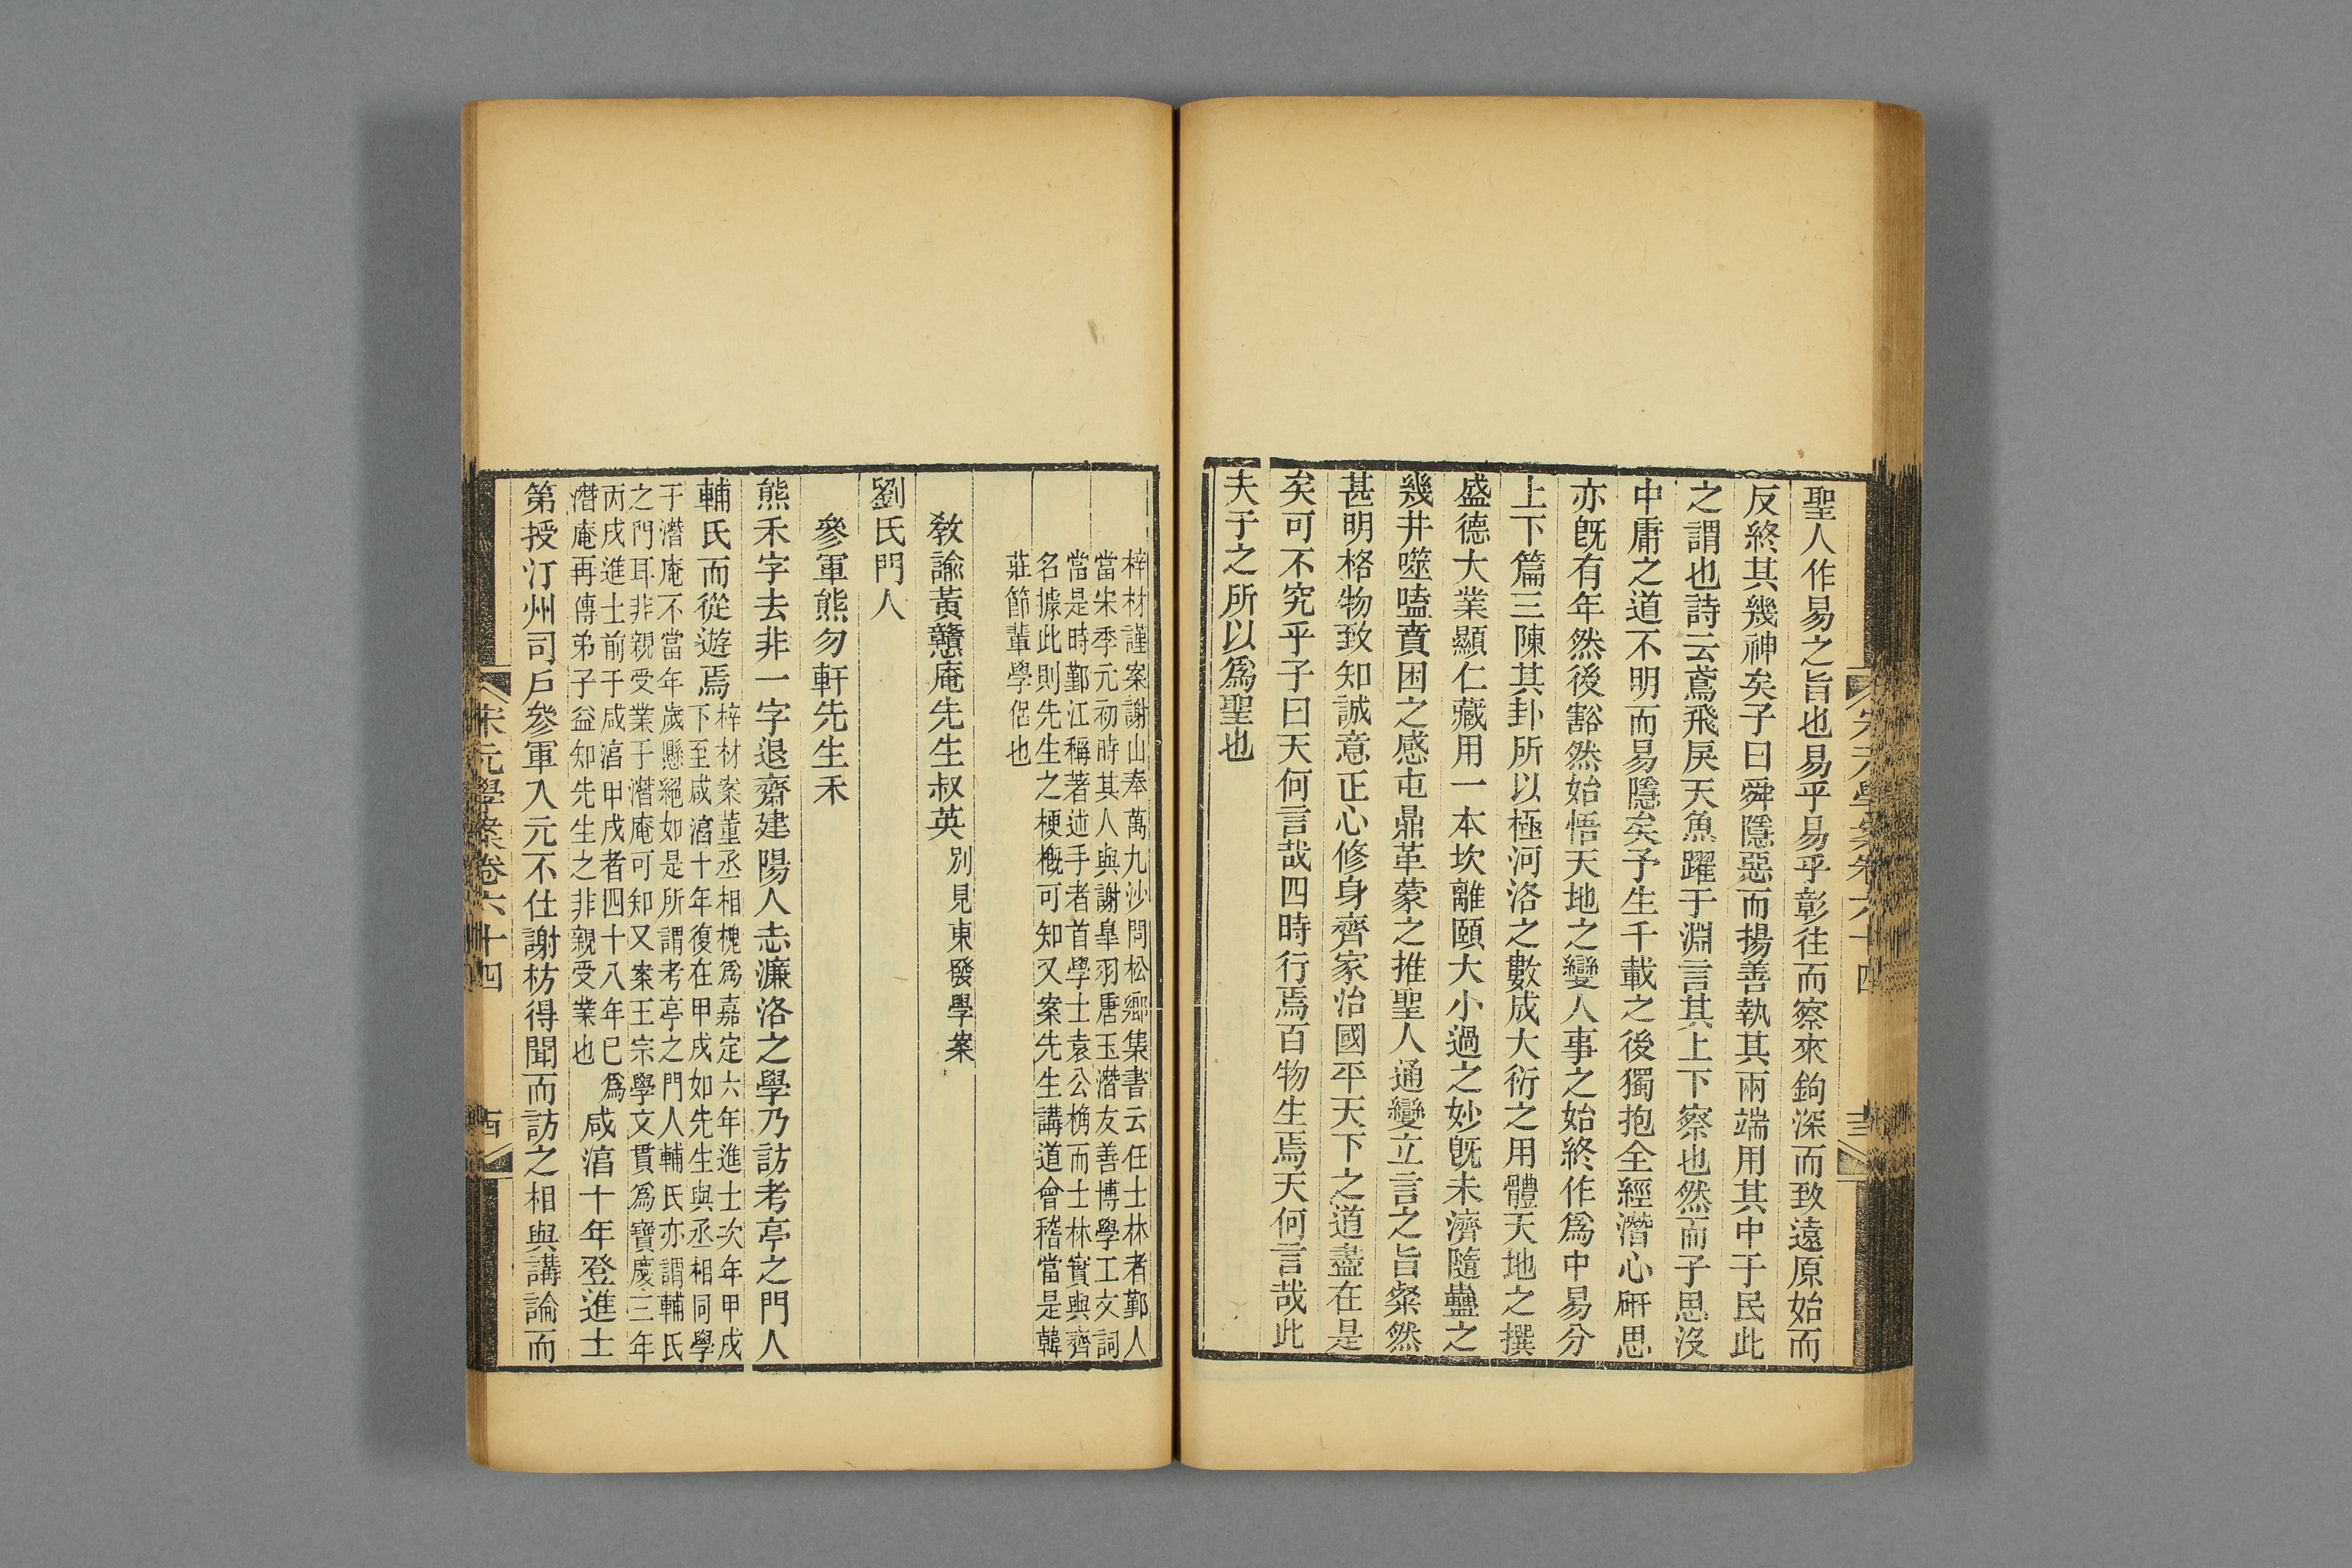 宋元學案卷六十四
聖人作易之旨也易乎易乎彰往而察來鉤深而致遠原始而
反終其幾神矣子曰舜隱惡而揚善執其兩端用其中于民此
之謂也詩云鳶飛戾天魚躍于淵言其上下察也然而子思沒
中庸之道不明而易隱矣予生千載之後獨抱全經潛心硏思
亦旣有年然後豁然始悟天地之變人事之始終作爲中易分
上下篇三陳其卦所以極河洛之數成大衍之用體天地之撰
盛德大業顯仁藏用一本坎離頤大小過之妙旣未濟隨蠱之
幾井噬嗑賁困之感屯鼎革蒙之推聖人通變立言之旨粲然
甚明格物致知誠意正心修身齊家治國平天下之道盡在是
矣可不究乎子曰天何言哉四時行焉百物生焉天何言哉此
夫子之所以爲聖也
梓材謹案謝山奉萬九沙問松鄉集書云任士林者鄞人
當宋季元初時其人與謝皐羽唐玉潛友善博學工文詞
當是時鄞江稱著述手者首學士袁公桷而士林實與齊
名據此則先生之梗槪可知又案先生講道會稽當是韓
莊節輩學侶也
敎諭黃戇庵先生叔英別見東發學案
劉氏門人
參軍熊勿軒先生禾
熊禾字去非一字退齋建陽人志濂洛之學乃訪考亭之門人
輔氏而從遊焉
梓材案董丞相槐爲嘉定六年進士次年甲戌
下至咸淳十年復在甲戌如先生與丞相同學
于潛庵不當年歲懸絕如是所謂考亭之門人輔氏亦謂輔氏
之門耳非親受業于潛庵可知又案王宗學文貫爲寶慶二年
丙戌進士前于咸淳甲戌者四十八年已爲
潛庵再傳弟子益知先生之非親受業也
咸淳十年登進士
第授汀州司戶參軍入元不仕謝枋得聞而訪之相與講論而
宋元學案卷六十四